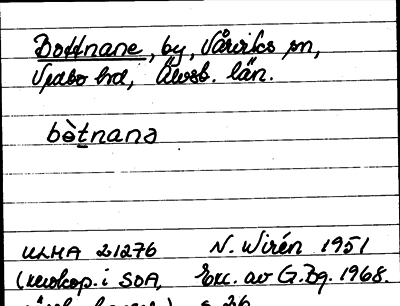 Bottnane, by, Vårviks sn,
Vedbo hd, Älvsb. län.
bòtnanə
ULMA 21276 N. Wirén 1951
(xerokop. i SOA, Exc. av G.Bg. 1968.
s. 36